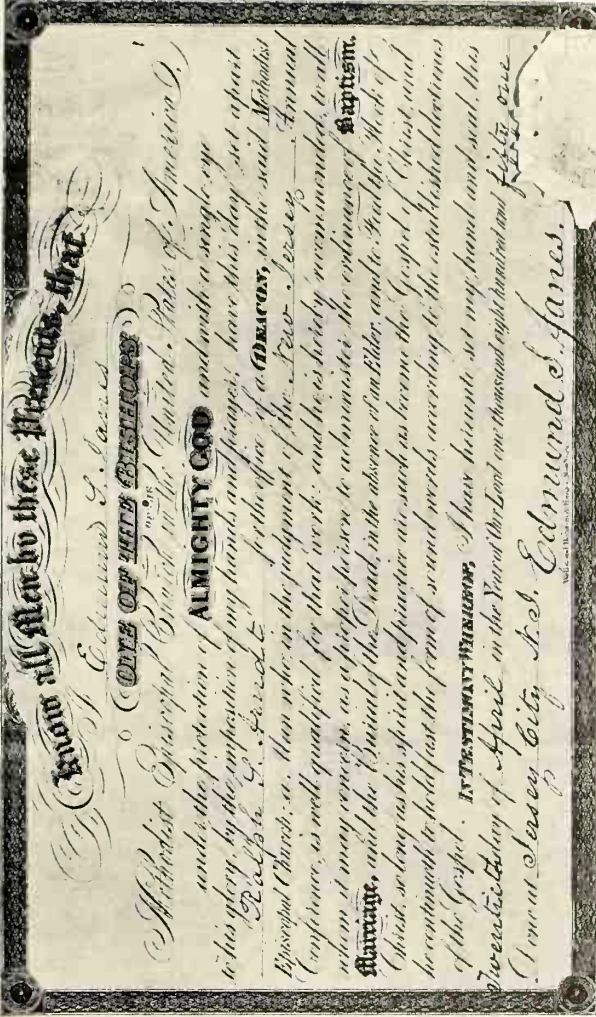 Know all Men by these Presents, that
I Edmund S. Janes
ONE OF THE BISHOPS
OF THE
Methodist Episcopal Church in the United States of America,
under the protection of ALMIGHTY GOD and with a single eye
to his glory, by the imposition of my hands and prayer, have this day set apart
Ralph S. Arndt for the office of a DEACON, in the said Methodist
Episcopal Church; a man who in the judgment of the New Jersey Annual
Conference, is well qualified for that work: and he is hereby recommended, to all
whom it may concern, as a proper person to administer the ordinances of Baptism,
Marriage, and the Burial of the Dead, in the absence of an Elder, and to Feed the flock of
Christ, so long as his spirit and practice are such as become the Gospel of Christ, and
he continueth to hold fast the form of sound words, according to the established doctrines
of the Gospel. IN TESTIMONY WHEREOF, I have hereunto set my hand and seal, this
Twentieth day of April in the Year of Our Lord one thousand eight hundred and fifty one
Done at Jersey City N.J. Edmund S. Janes.